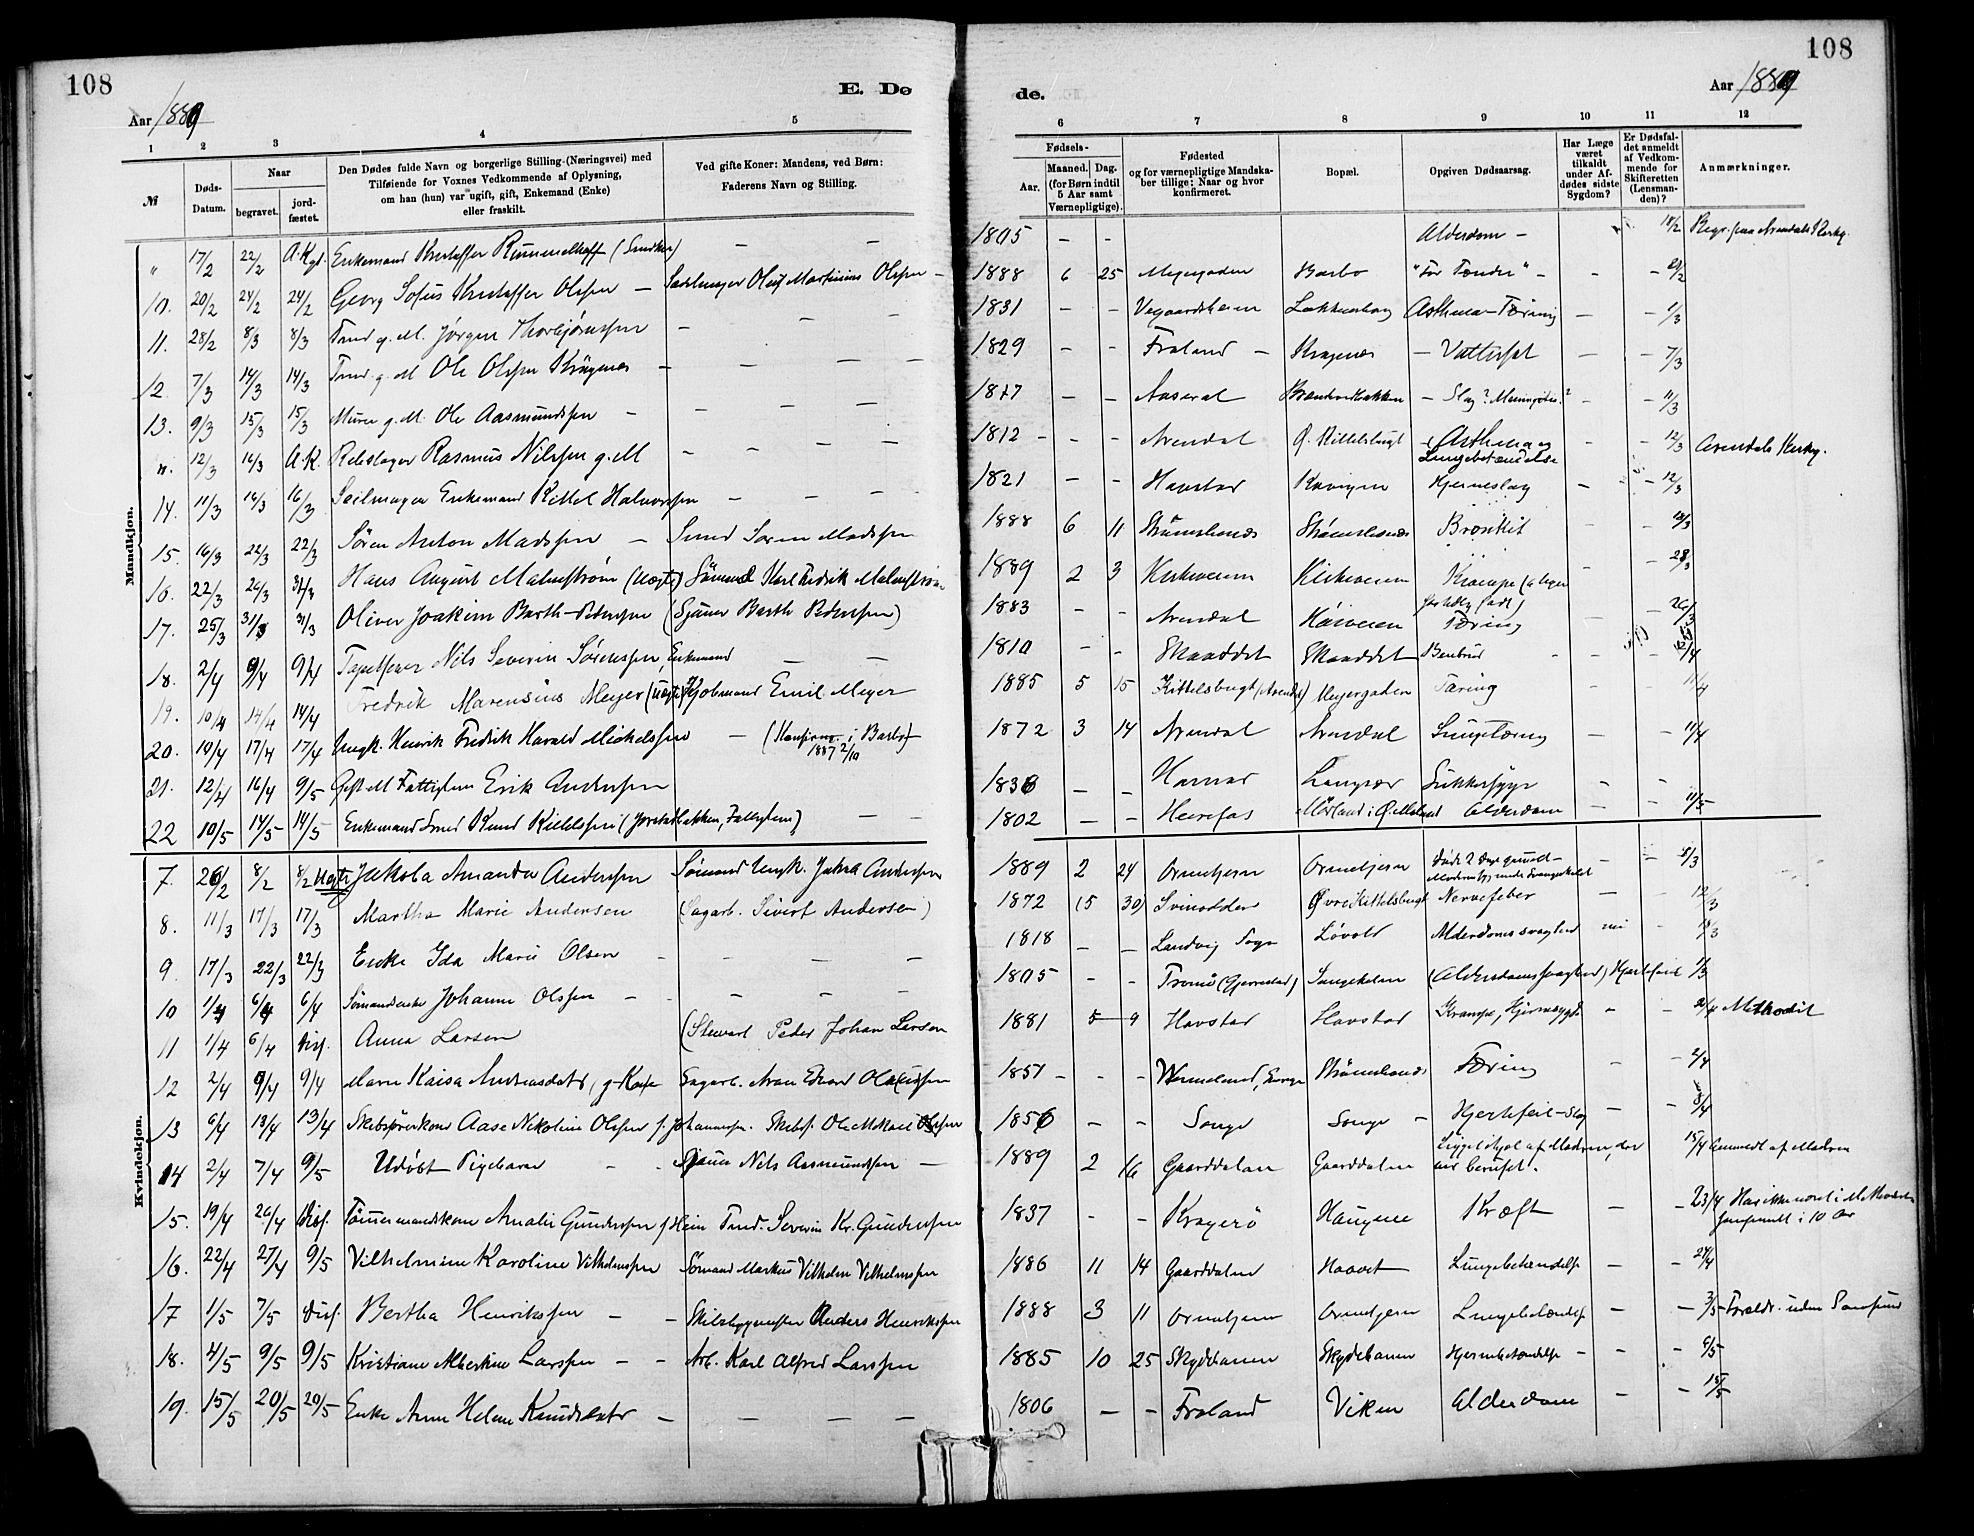 108
108
E. Dø
de.
Aar 1889
Aar 1889
1 2 3 4 5 6 7 8 9 10 11 12
№
Døds-Datum.
Naar
begravet.
jord-fæstet.
Den Dødes fulde Navn og borgerlige Stilling (Næringsvei) med
Tilføiende for Voxnes Vedkommende af Oplysning,
om han (hun) var ugift, gift, Enkemand (Enke)
eller fraskilt.
Ved gifte Koner: Mandens, ved Børn:
Faderens Navn og Stilling.
Fødsels-
Aar.
Maaned. Dag.
(for Børn indtil
5 Aar samt
Værnepligtige).
Fødested
og for værnepligtige Mandska-
ber tillige: Naar og hvor
konfirmeret.
Bopæl.
Opgiven Dødsaarsag.
Har Læge
været
tilkaldt
under Af-
dødes sidste
Sygdom?
Er Dødsfal-
det anmeldt
af Vedkom-
mende for
Skifteretten
(Lensman-
den)?
Anmærkninger.
Mandkjøn.
" 17/2 22/2 A.Kgd. Enkemand Kristoffer Rummelhoff — — 1805 - - Alderdom - 18/2 Begr. paa Arendals Kirkg.
10. 20/2 24/2 24/2 Georg Sofus Kristoffer Olssen — Sadelmager Oluf Martinius Olssen — 1888 6 25 Meyergaden Barbo "For Tænder" - - -
11. 28/2 8/3 8/3 Tmd g.M. Jørgen Thorbjørnssen - - - - 1831 - - Vegaardsheien Asthma - Tæring - - 1/3
12. 7/3 14/3 14/3 Tmd. g.M Ole Olssen Krøgenes - - - - 1829 - - Froland - Krøgenes - Vattersot - - 7/3
13. 9/3 15/3 15/3 Murer g.M. Ole Aasmundssen - - - - 1817 - - Aaseral - Slag? - 11/3
". 12/3 16/3 A.K. Rebslager Rasmus Nilssen g.M - - - - 1812 - - - Arendal Ø. Kittelsbugt Asthma og Lungebetændelse - - 12/3 Arendals Kirkg.
14. 11/3 16/3 16/3 Seilmager Enkemand Kittel Halvorssen - - - 1821 - - Havstad Hjerneslag - - 12/3
15. 16/3 22/3 22/3 Søren Anton Madssen — Smed Søren Madssen 1888 6 11 Strømsbonæs Strømsbonæs Bronkit - - 18/3
16. 22/3 26/3 31/3 Hans August Malmstrøm (Uægte) Sømand Karl Fredrik Malmstrøm 1889 2 3 Kirkeveien Kirkeveien Krampe - - 28/3
17. 25/3 31/3 31/3 Oliver Joakim Barth-Pederssen (Sjøm. Barth Pederssen) 1883 - - Arendal Høiveien Tæring - - 26/3
18. 2/4 9/4 9/4 Nils Severin Sørenssen, Enkemand — — 1810 - - Skaaddet Skaaddet Benbrud - - -
19. 10/4 14/4 14/4 Fredrik Marensius Meyer (Uægte) Emil Meyer 1885 5 15 Kittelsbugt (Arendal) Meyergaden Tæring - - 11/4
20. 10/4 17/4 17/4 Ungk. Henrik Fredrik Harald Mickelssen — (Konfirm. i Barbo 1887 2/10) 1872 3 14 Arendal Arendal Lungetæring - - 11/4
21. 12/4 16/4 9/5 Gift M Fattiglem Erik Anderssen 1836 - - Sukkersyge -
22 10/5 14/5 14/5 Enkemand Smed Knud — — 1802 - - Alderdom - - 11/5
Kvindekjøn.
7. 26/2 8/2 8/2 Uægte Jakoba Amanda Anderssen Sømand Ungk. Anderssen 1889 2 24 Ormehjem Ormehjem - - 8/3
8. 11/3 17/3 17/3 Martha Marie Andersen (Sagarb. Sivert Andersen) 1872 (5 30) Svinodden Øvre Kittelsbugt Nervefeber - - 12/3
9 17/3 22/3 22/3 Enke Ida Marie Olsen - - - - 1818 - - Landvig Sogn Løvold Alderdomssvaghed - 18/3
10 1/4 6/4 6/4 Sømandsenke Johanne Olssen - - - - 1805 - - Tromø (Gjerrestad) Songekelen (Alderdomssvaghed) Hjertefeil 1/3
11 1/4 6/4 Disp. Anna Larsen (Stewart Peder Johan Larsen 1881 5 9 Havstad Havstad Krampe, Hjernesygd. - - 2/4 Methodist
12 2/4 9/4 9/4 Maren Kaisa Andreasdatr, g. Kone Sagarb. 1851 - - - Strømsbonæs Tæring - - 2/4
13 6/4 13/4 13/4 Skibsførerkone Aase Nikoline Olssen f. Johannessen. Skibsf. Ole Mikael Olssen 1856 - - Songe Songe - Hjertefeil - Slag - - 8/4
14 2/4 7/4 9/5 Udøbt Pigebarn - - Nils Aasmundssen — 1889 2 16 Gaarddalen Gaarddalen Ligget ihjel af Moderen, der 15/4 Anmeldt af Moderen
15. 19/4 26/4 Disp. Tømmermandskone Amalie Gunderssen f. Hein Tmd. Severin Kr. Gunderssen 1837 - - Kragerø Haugene Kræft - - 23/4 Har ikke været i
Samfundet i 10 Aar
16. 22/4 27/4 9/5 Vilhelmine Karoline Vilhelmssen Sømand Markus Vilhelm Vilhelmssen 1886 11 14 Gaarddalen Haavet Lungebetændelse - - 24/4
17 1/5 7/5 Disp. Bertha Henrikssen - - Skibsbygmester Anders Henrikssen 1888 3 11 Ormehjem Ormehjem Lungebetændelse - - 3/5 Foræld. uden Samfund
18. 4/5 9/5 9/5 Kristiane Albertine Larssen - - Arb. Karl Alfred Larssen 1885 10 25 Skydebanen Skydebanen Hjernebetændelse - - - 6/5
19. 15/5 20/5 20/5 Enke Anne Helene Knudsdatr - - - - 1806 - - Froland Viken Alderdom - - 18/5